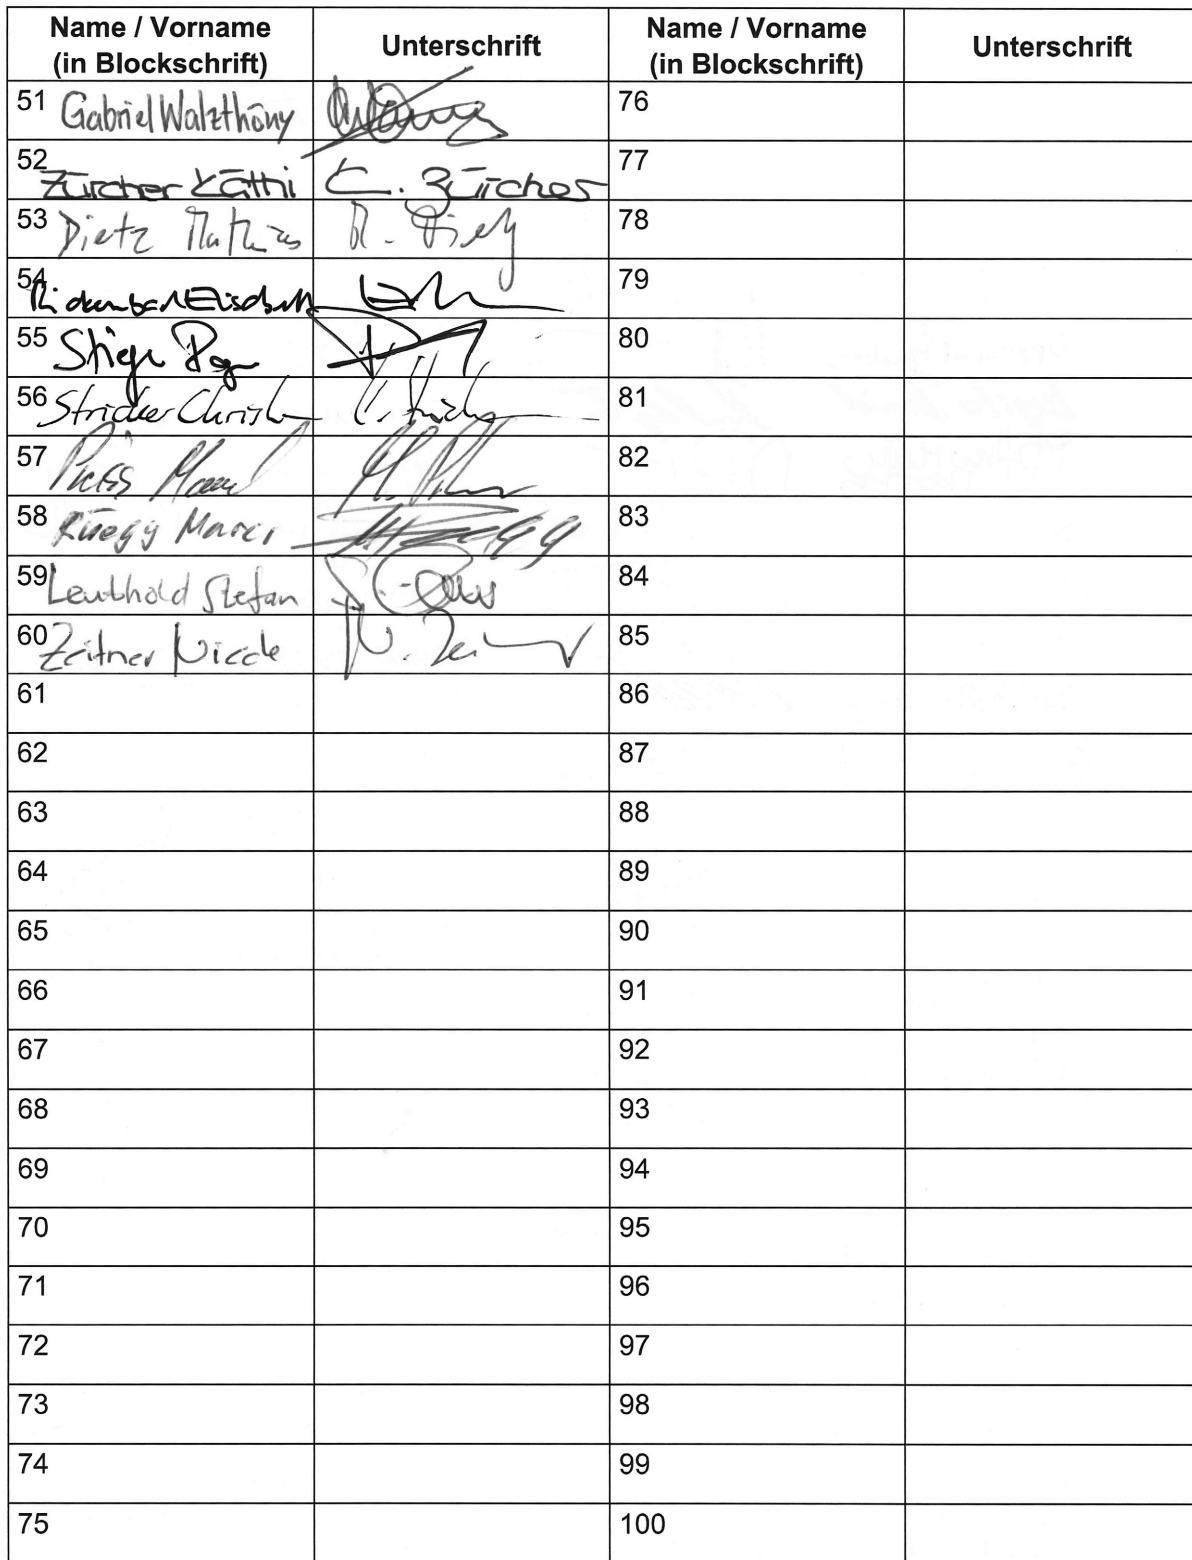 Name / Vorname (in Blockschrift) Unterschrift Name / Vorname (in Blockschrift) Unterschrift
51 Gabriel Walzthöny 76
52 Zürcher Käthi K. Zürcher 77
53 Dietz Mathias M. Dietz 78
54 79
55 80
56 Stricker Christ 81
57 82
58 Rüegg 83
59 Leuthold Stefan 84
60 Zeitner Nicole 85
61 86
62 87
63 88
64 89
65 90
66 91
67 92
68 93
69 94
70 95
71 96
72 97
73 98
74 99
75 100